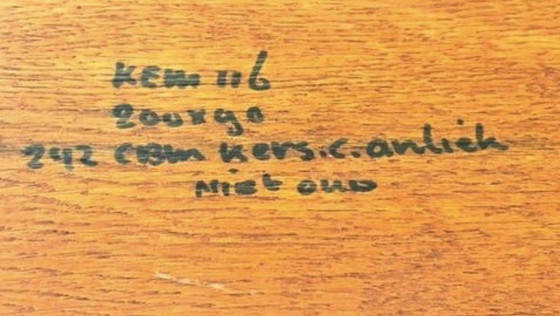 KEM 116
200x90
242 CBM Kers.c.antiek
Niet oud